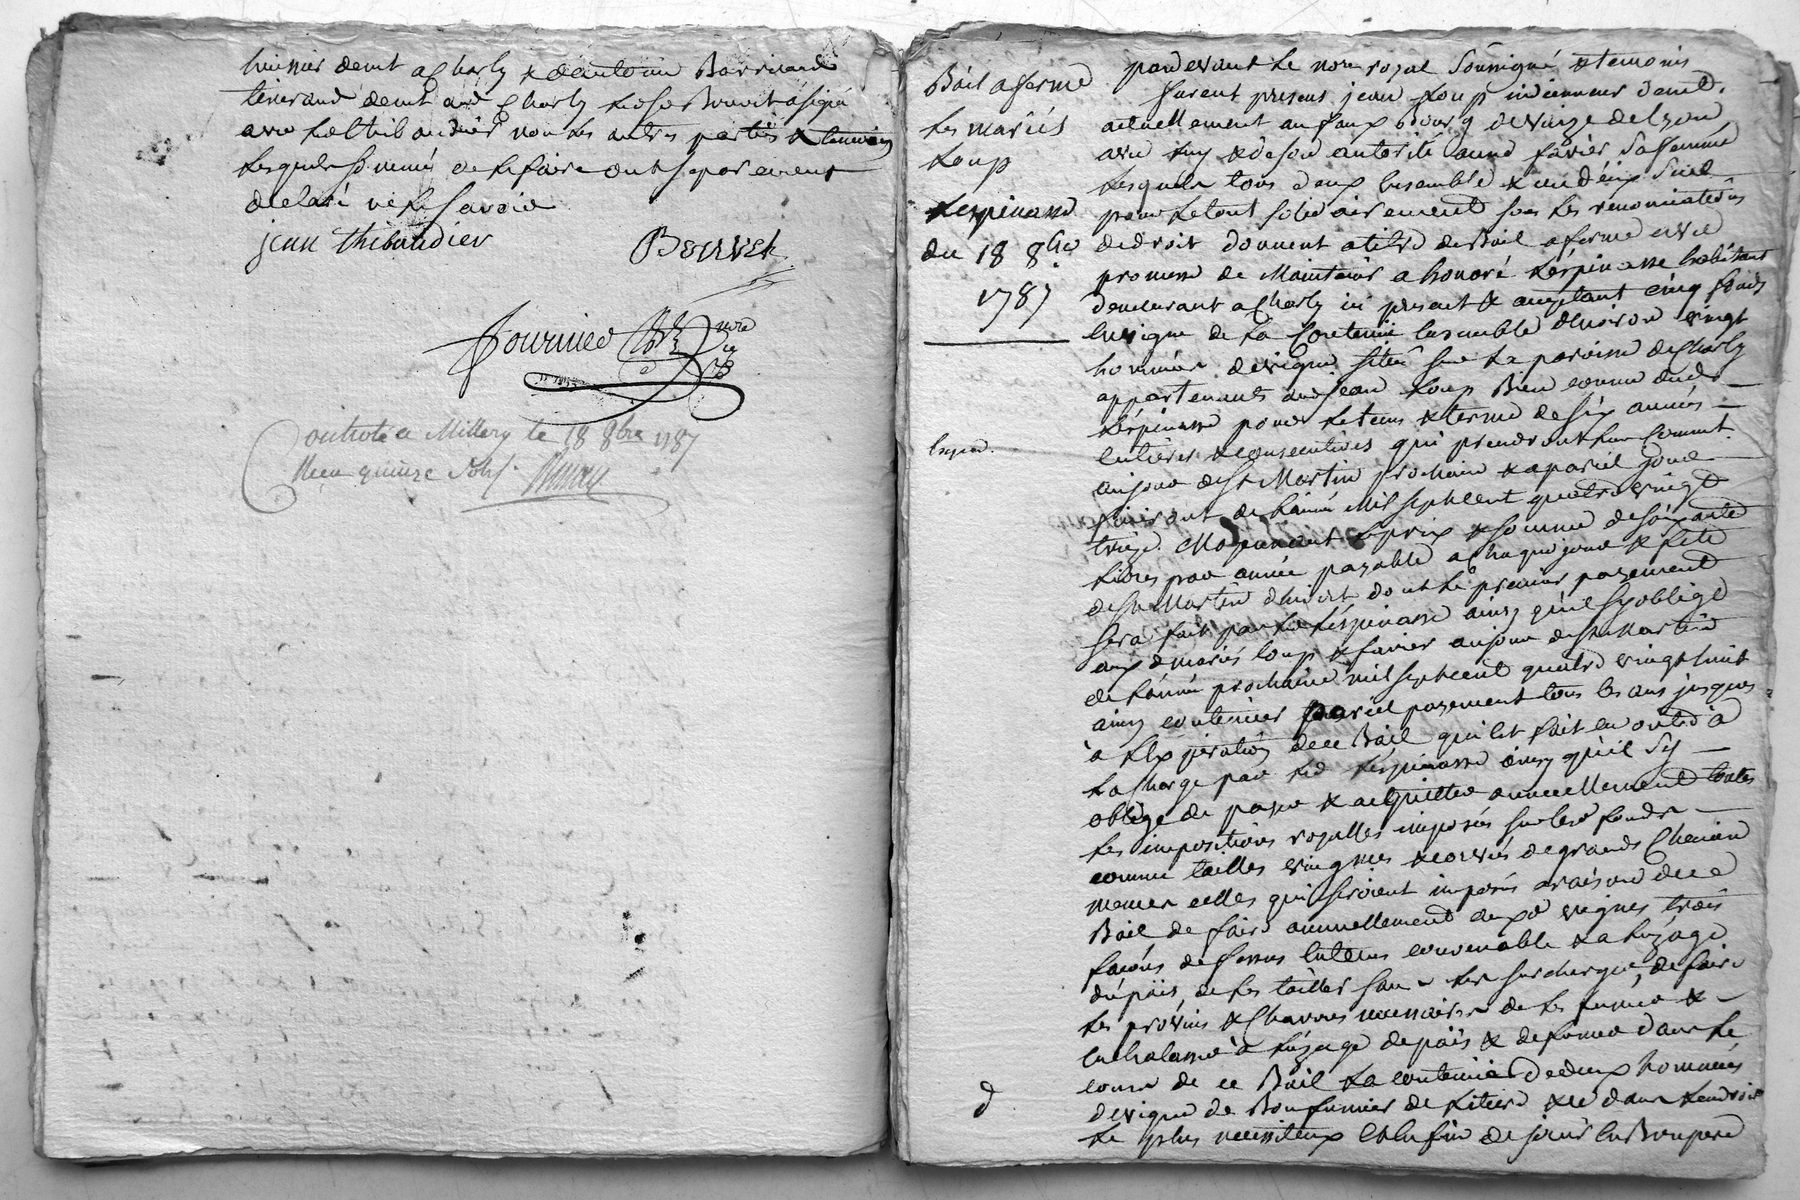 huissier demt a Charly & d'antoine Barriand
tisserand demt aud Charly led sr Bouvet a signé
avec led thibaudier non les autres parties & temoins
lesquels de ce faire ont separement
declaré ne le savoir
jean thibaudier
Bouvet
Fournier
Controlé a Millery le 18 8bre 1787
Reçu quinze sols
Bail a ferme
les mariés
Loup
Lespinasse
du 18 8bre
1787
exped.
pardevant le nore royal soussigné & temoins
furent presens jean Loup indienneur demt
actuellement au faux Bourg de vaize de Lyon
avec luy & de son autorité anne favier sa femme
lesquels tous deux ensemble & un d'eux seul
pour le tout solidairement sous les renonciations
de droit donnent a titre de Bail a ferme avec
promesse de Maintenir a honoré Léspinasse habitant
demeurant a Charly ici present & acceptant cinq fonds
en vigne de la Contenue ensemble d'environ vingt
hommées de vigne situés sur la paroisse de Charly
appartenants aud jean Loup Bien connus dud
Léspinasse pour le tems & terme de six années
entières & consecutives qui prendront leur commt
au jour de St Martin prochain & a pareil jour
finiront de l'année Mil sept cent quatre vingt
treize. Moyennant le prix & somme de soixante
livres par année payable a chaque jour & fete
de St Martin d'hiver dont le premier payement
sera fait par led Léspinasse ainsy qu'il s'y oblige
aux d mariés Loup & favier au jour de St Martin
de l'année prochaine mil sept cent quatre vingt huit
ainsy continuer pareil payement tous les ans jusques
à l'expiration de ce Bail qui est fait en outre à
la charge par led Léspinasse ainsy qu'il s'y
oblige de payer & acquitter annuellement toutes
les impositions royalles imposées sur lesd fonds
comme tailles vingmes & corvées de grands Chemins
memes celles qui seroient imposés a raison de ce
Bail de faire annuellement auxd vignes trois
façons de fossus en tems convenable & a l'uzage
du païs, de les tailler sans les surcharger, de faire
les provins & Chavons necessaires de les fumer &
a l'uzage de païs & de fumer dans le
cours de ce Bail la contenue de deux hommées
de vigne de Bon fumier de litiere & ce dans l'endroit
le plus necessiteux et la fin de jouir en Bon pere
d